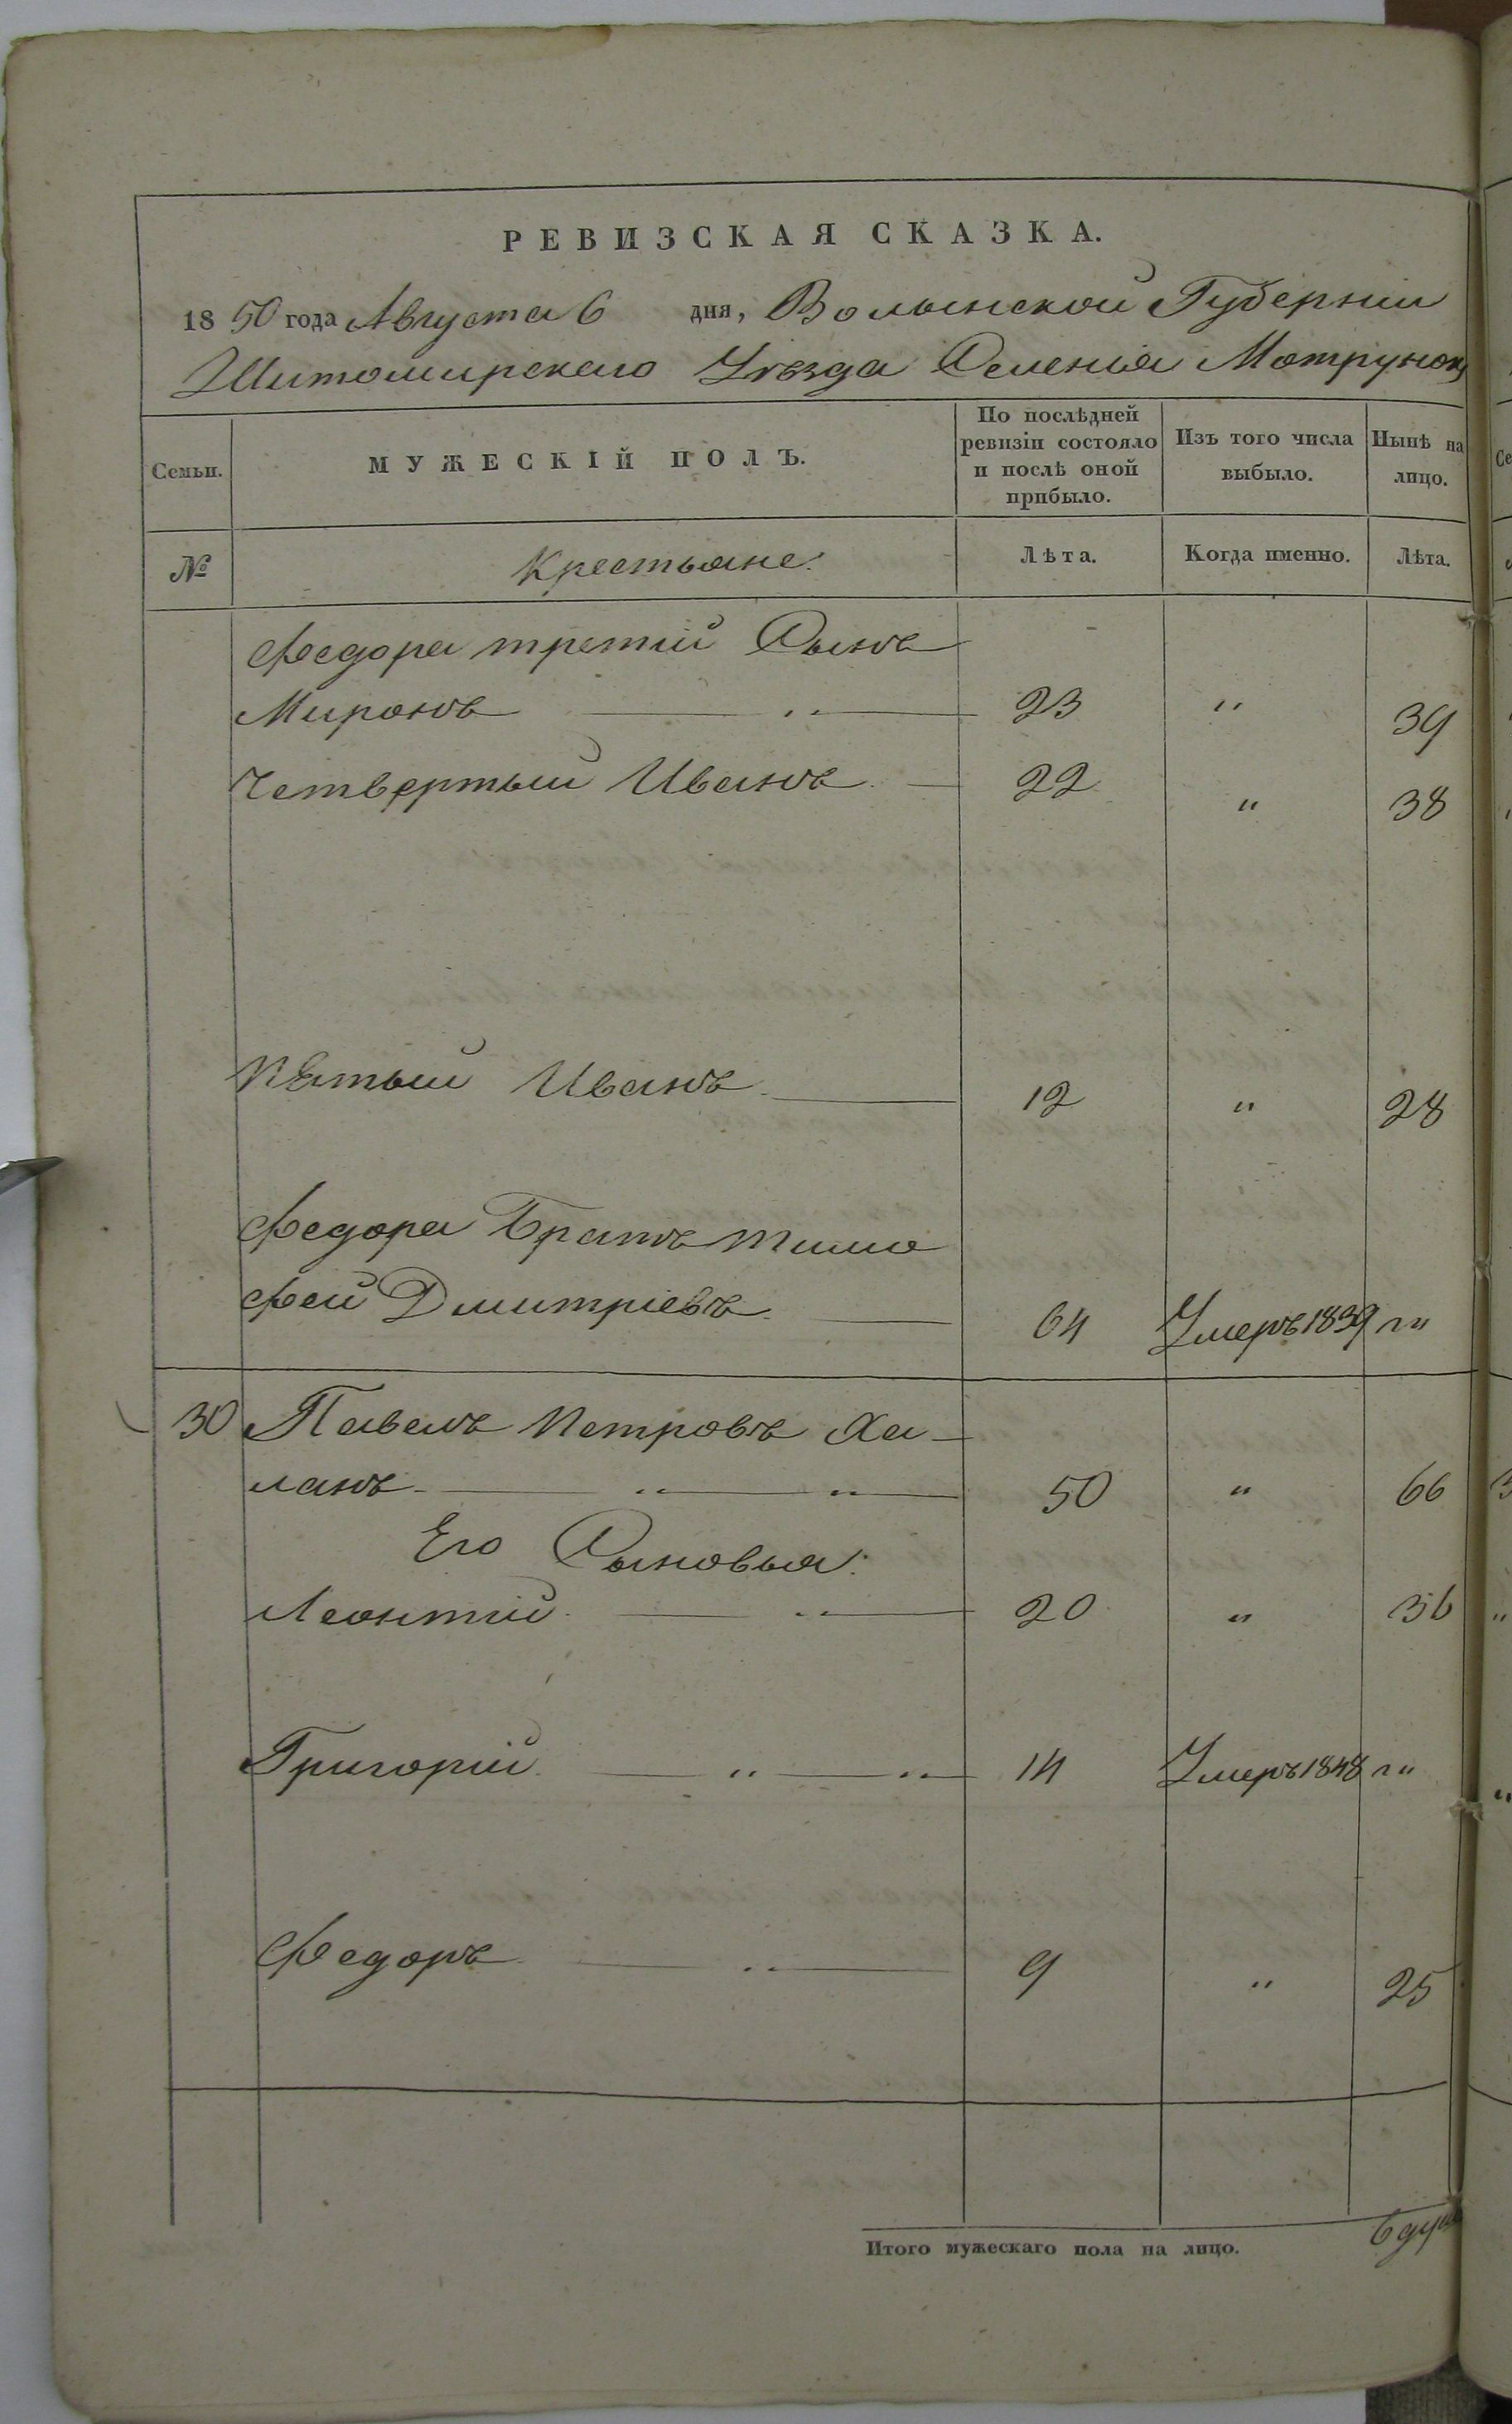 РЕВИЗСКАЯ СКАЗКА.
1850 года Августа 6 дня, Волынской Губерніи
Житомирскаго Уѣзда Селенія Матрунок
Семьи.
МУЖЕСКІЙ ПОЛЪ.
По послѣдней
ревизіи состояло
и послѣ оной
прибыло.
Изъ того числа
выбыло.
Нынѣ на
лицо.
№
Крестьяне:
Лѣта.
Когда именно.
Лѣта.
Федора третій Сынъ
Миронъ — „ — 23 „ 39
Четвертый Иванъ — 22 „ 38
Пятый Иванъ — 12 „ 28
Федора Братъ Тимо
фей Дмитріевъ — 64 Умеръ 1839 г „
30 Павелъ Петровъ Ха-
ланъ — „ — „ — 50 „ 66
Его Сыновья:
Леонтій — „ — 20 „ 36
Григорій — „ — „ — 14 Умеръ 1848 г „
Федоръ — „ — 9 „ 25
Итого мужескаго пола на лицо. 6 душ